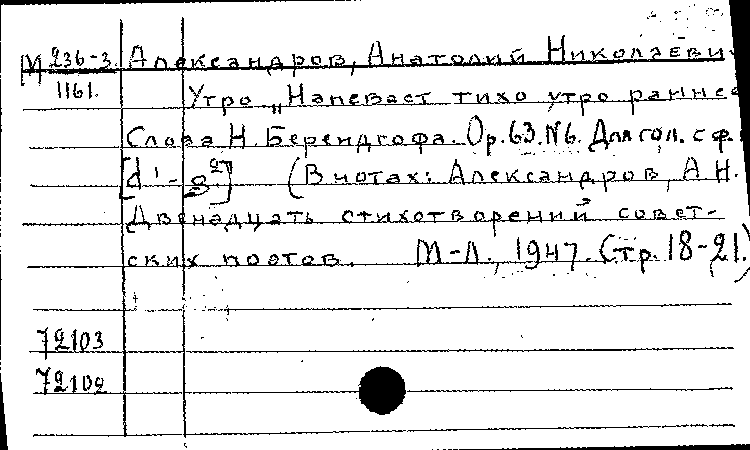 М 236-3. Александров, Анатолий Николаеви
1161.
Утро „Напевает тихо утро раннее
Слова Н. Берендгофа. Ор. 63. №6. Для гол. с ф.
[d¹ - g²] (В нотах: Александров, А. Н.
Двенадцать стихотворений совет-
ских поэтов. М-Л., 1947. Стр. 18-21.)
72103
72102